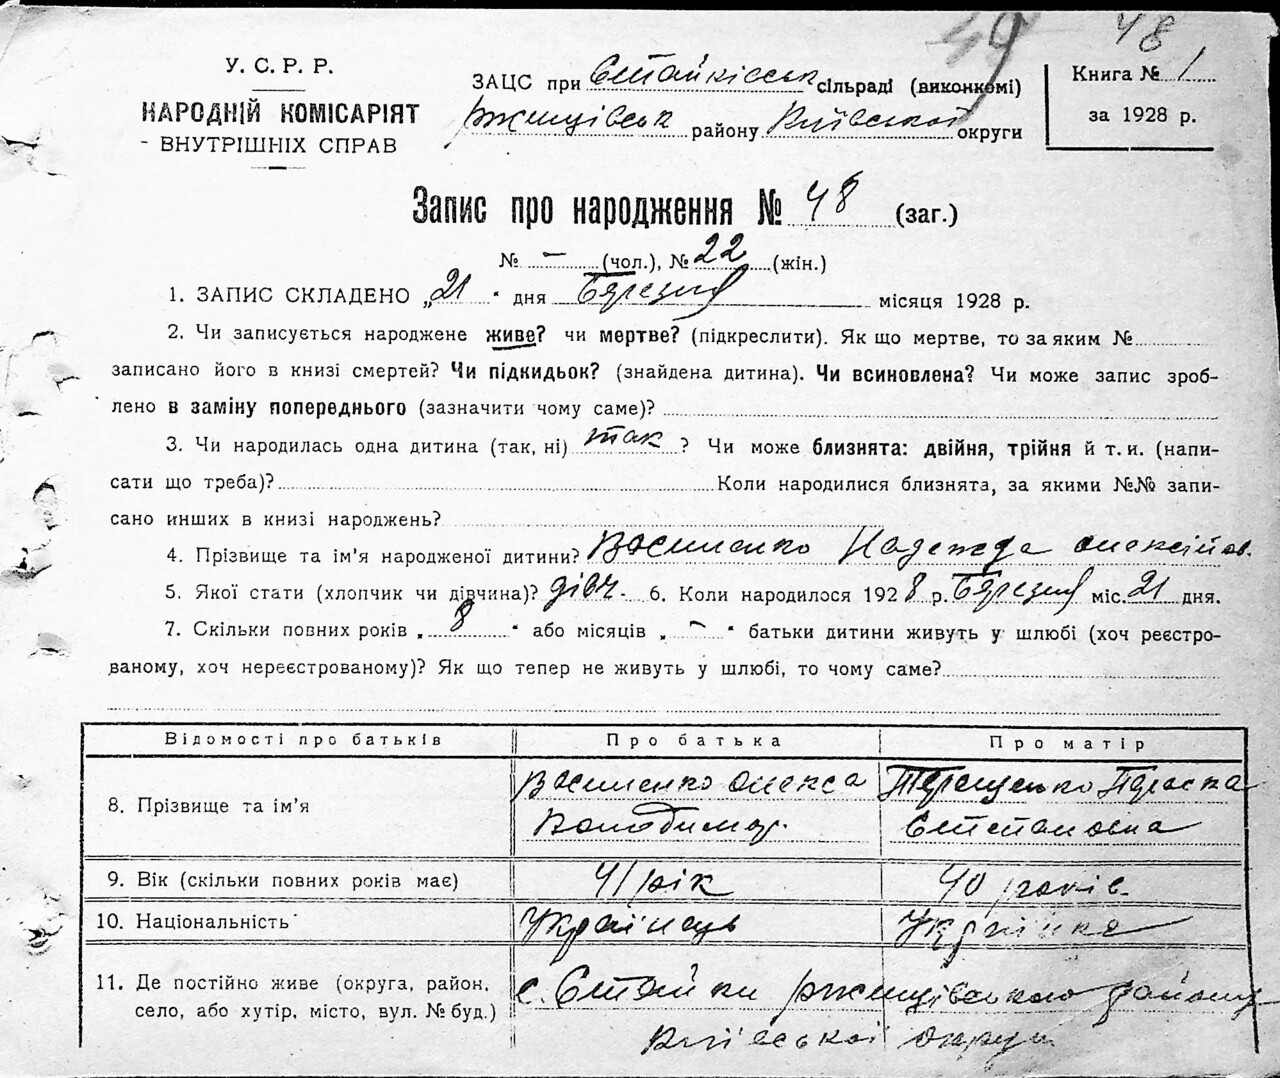 49 48
У. С. Р. Р.
НАРОДНІЙ КОМІСАРІЯТ
ВНУТРІШНІХ СПРАВ
ЗАЦС при Стайківськ сільраді (виконкомі)
Ржищівськ району Київської округи
Книга № 1
за 1928 р.
Запис про народження № 48 (заг.)
№ – (чол.), № 22 (жін.)
1. ЗАПИС СКЛАДЕНО „21" дня Березня місяця 1928 р.
2. Чи записується народжене живе? чи мертве? (підкреслити). Як що мертве, то за яким №
записано його в книзі смертей? Чи підкидьок? (знайдена дитина). Чи всиновлена? Чи може запис зроб-
лено в заміну попереднього (зазначити чому саме)?
3. Чи народилась одна дитина (так, ні) так ? Чи може близнята: двійня, трійня й т. и. (напи-
сати що треба)? Коли народилися близнята, за якими №№ запи-
сано инших в книзі народжень?
4. Прізвище та ім'я народженої дитини? Василенко Надежда Олексіїв.
5. Якої стати (хлопчик чи дівчина)? дівч. 6. Коли народилося 1928 р. Березня міс. 21 дня.
7. Скільки повних років „8" або місяців „–" батьки дитини живуть у шлюбі (хоч реєстро-
ваному, хоч нереєстрованому)? Як що тепер не живуть у шлюбі, то чому саме?
Відомості про батьків Про батька Про матір
8. Прізвище та ім'я Василенко Олекса Володимир. Терещенко Параска Степановна
9. Вік (скільки повних років має) 41 рік 40 років
10. Національність Українець Українка
11. Де постійно живе (округа, район, с. Стайки Ржищівського району
село, або хутір, місто, вул. № буд.) Київської округи